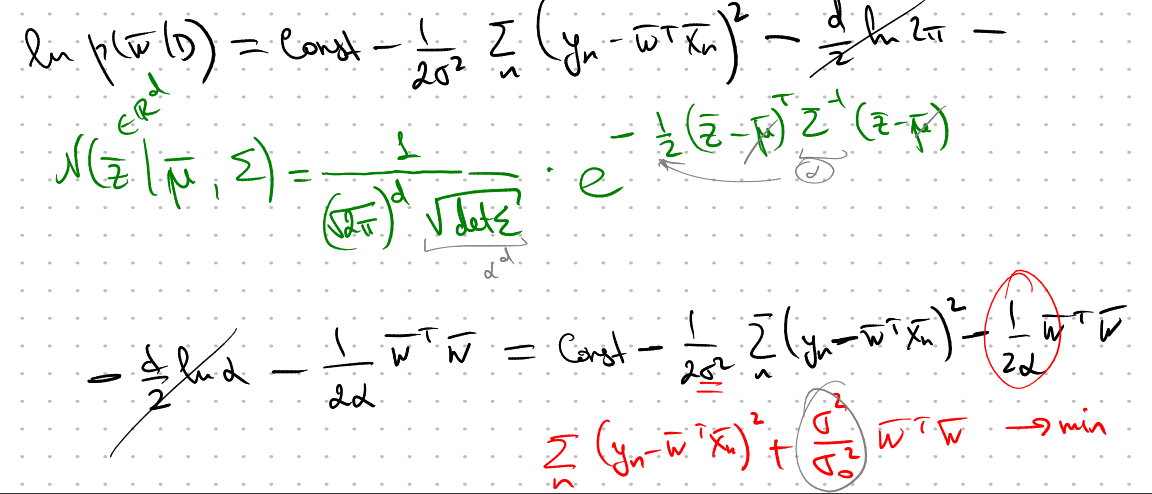 ln p(w̅|D) = Const − 1/(2σ²) Σₙ (yₙ − w̅ᵀx̅ₙ)² − d/2 ln 2π −
∈ℝᵈ
N(z̅ | μ̅, Σ) = 1/((√2π)ᵈ √detΣ) · e^(−1/2 (z̅ − μ̅)ᵀ Σ⁻¹ (z̅ − μ̅))
α
αᵈ
− d/2 ln α − 1/(2α) w̅ᵀw̅ = Const − 1/(2σ²) Σₙ (yₙ − w̅ᵀx̅ₙ)² − 1/(2α) w̅ᵀw̅
Σₙ (yₙ − w̅ᵀx̅ₙ)² + σ²/σ₀² w̅ᵀw̅ → min